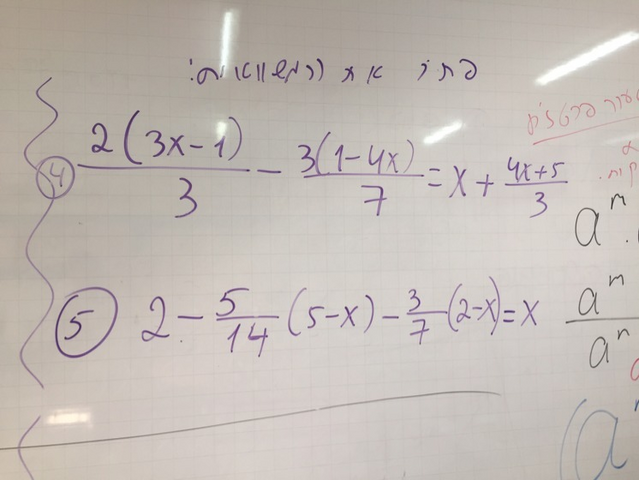 פתרו את המשוואות:
④ 2(3x-1)/3 - 3(1-4x)/7 = x + (4x+5)/3
⑤ 2 - 5/14 (5-x) - 3/7 (2-x) = x
aⁿ ·
aⁿ
aⁿ
(aⁿ